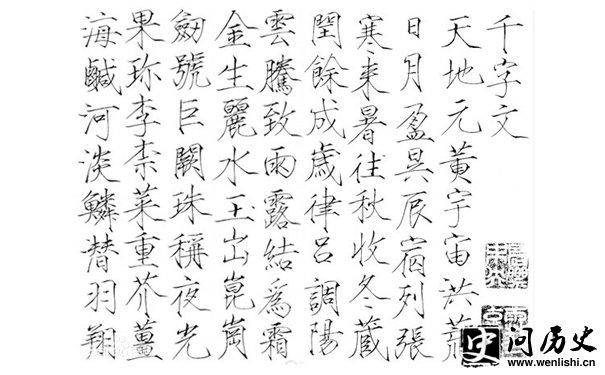 千字文
天地元黄宇宙洪荒
日月盈昃辰宿列張
寒来暑往秋收冬藏
閏餘成歲律呂調陽
雲騰致雨露結爲霜
金生麗水玉出崑崗
劒號巨闕珠稱夜光
果珎李柰菜重芥薑
海鹹河淡鱗潜羽翔
史问历史
www.wenlishi.cn